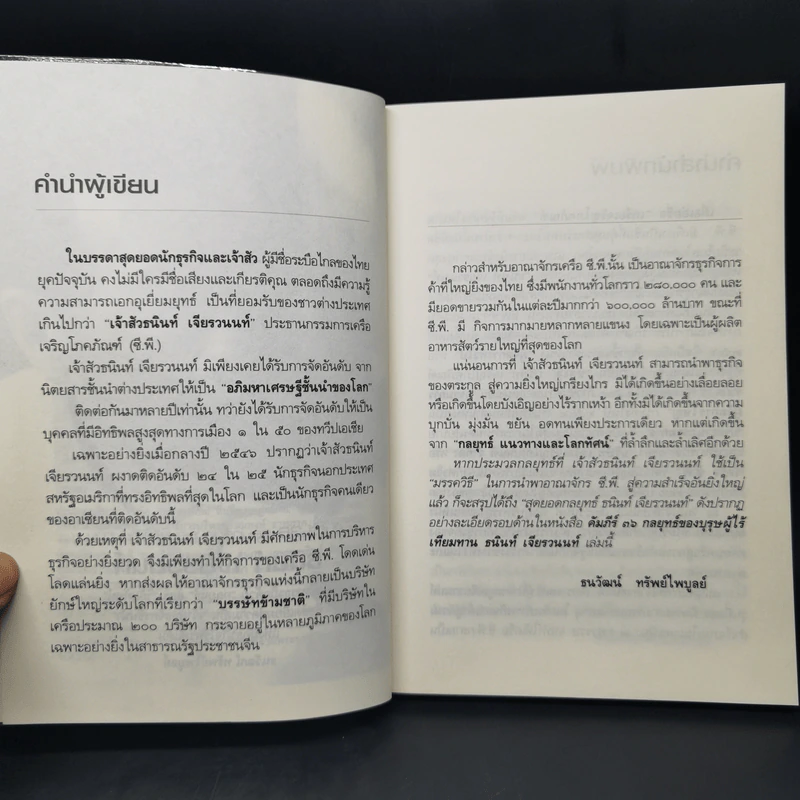 คำนำผู้เขียน
ในบรรดาสุดยอดนักธุรกิจและเจ้าสัว ผู้มีชื่อระบือไกลของไทย
ยุคปัจจุบัน คงไม่มีใครมีชื่อเสียงและเกียรติคุณ ตลอดถึงมีความรู้
ความสามารถเอกอุเยี่ยมยุทธ์ เป็นที่ยอมรับของชาวต่างประเทศ
เกินไปกว่า "เจ้าสัวธนินท์ เจียรวนนท์" ประธานกรรมการเครือ
เจริญโภคภัณฑ์ (ซี.พี.)
เจ้าสัวธนินท์ เจียรวนนท์ มิเพียงเคยได้รับการจัดอันดับ จาก
นิตยสารชั้นนำต่างประเทศให้เป็น "อภิมหาเศรษฐีชั้นนำของโลก"
ติดต่อกันมาหลายปีเท่านั้น ทว่ายังได้รับการจัดอันดับให้เป็น
บุคคลที่มีอิทธิพลสูงสุดทางการเมือง ๑ ใน ๕๐ ของทวีปเอเชีย
เฉพาะอย่างยิ่งเมื่อกลางปี ๒๕๔๖ ปรากฏว่าเจ้าสัวธนินท์
เจียรวนนท์ ผงาดติดอันดับ ๒๔ ใน ๒๕ นักธุรกิจนอกประเทศ
สหรัฐอเมริกาที่ทรงอิทธิพลที่สุดในโลก และเป็นนักธุรกิจคนเดียว
ของอาเซียนที่ติดอันดับนี้
ด้วยเหตุที่ เจ้าสัวธนินท์ เจียรวนนท์ มีศักยภาพในการบริหาร
ธุรกิจอย่างยิ่งยวด จึงมิเพียงทำให้กิจการของเครือ ซี.พี. โดดเด่น
โลดแล่นยิ่ง หากส่งผลให้อาณาจักรธุรกิจแห่งนี้กลายเป็นบริษัท
ยักษ์ใหญ่ระดับโลกที่เรียกว่า "บรรษัทข้ามชาติ" ที่มีบริษัทใน
เครือประมาณ ๒๐๐ บริษัท กระจายอยู่ในหลายภูมิภาคของโลก
เฉพาะอย่างยิ่งในสาธารณรัฐประชาชนจีน
กล่าวสำหรับอาณาจักรเครือ ซี.พี.นั้น เป็นอาณาจักรธุรกิจการ
ค้าที่ใหญ่ยิ่งของไทย ซึ่งมีพนักงานทั่วโลกราว ๒๘๐,๐๐๐ คน และ
มียอดขายรวมกันในแต่ละปีมากกว่า ๖๐๐,๐๐๐ ล้านบาท ขณะที่
ซี.พี. มี กิจการมากมายหลากหลายแขนง โดยเฉพาะเป็นผู้ผลิต
อาหารสัตว์รายใหญ่ที่สุดของโลก
แน่นอนการที่ เจ้าสัวธนินท์ เจียรวนนท์ สามารถนำพาธุรกิจ
ของตระกูล สู่ความยิ่งใหญ่เกรียงไกร มิได้เกิดขึ้นอย่างเลื่อนลอย
หรือเกิดขึ้นโดยบังเอิญอย่างไร้รากเหง้า อีกทั้งมิได้เกิดขึ้นจากความ
บุกบั่น มุ่งมั่น ขยัน อดทนเพียงประการเดียว หากแต่เกิดขึ้น
จาก "กลยุทธ์ แนวทางและโลกทัศน์" ที่ล้ำลึกและล้ำเลิศอีกด้วย
หากประมวลกลยุทธ์ที่ เจ้าสัวธนินท์ เจียรวนนท์ ใช้เป็น
"มรรควิธี" ในการนำพาอาณาจักร ซี.พี. สู่ความสำเร็จอันยิ่งใหญ่
แล้ว ก็จะสรุปได้ถึง "สุดยอดกลยุทธ์ ธนินท์ เจียรวนนท์" ดังปรากฏ
อย่างละเอียดรอบด้านในหนังสือ คัมภีร์ ๓๖ กลยุทธ์ของบุรุษผู้ไร้
เทียมทาน ธนินท์ เจียรวนนท์ เล่มนี้
ธนวัฒน์ ทรัพย์ไพบูลย์